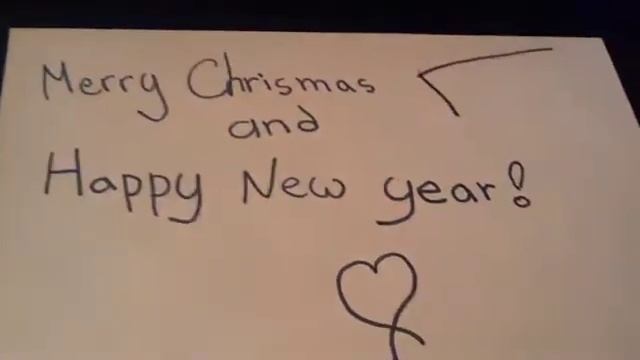 Merry Chrismas
and
Happy New year!